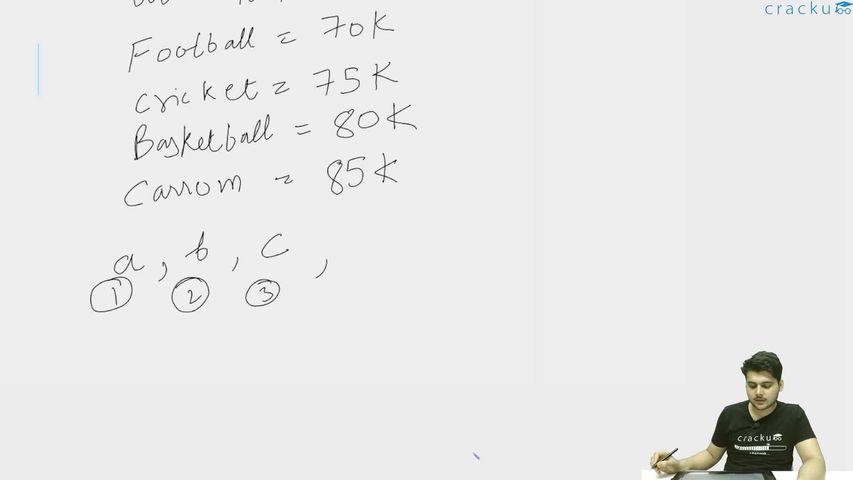 cracku
Football = 70K
Cricket = 75K
Basketball = 80K
Carrom = 85K
a, b, c,
1 2 3
cracku